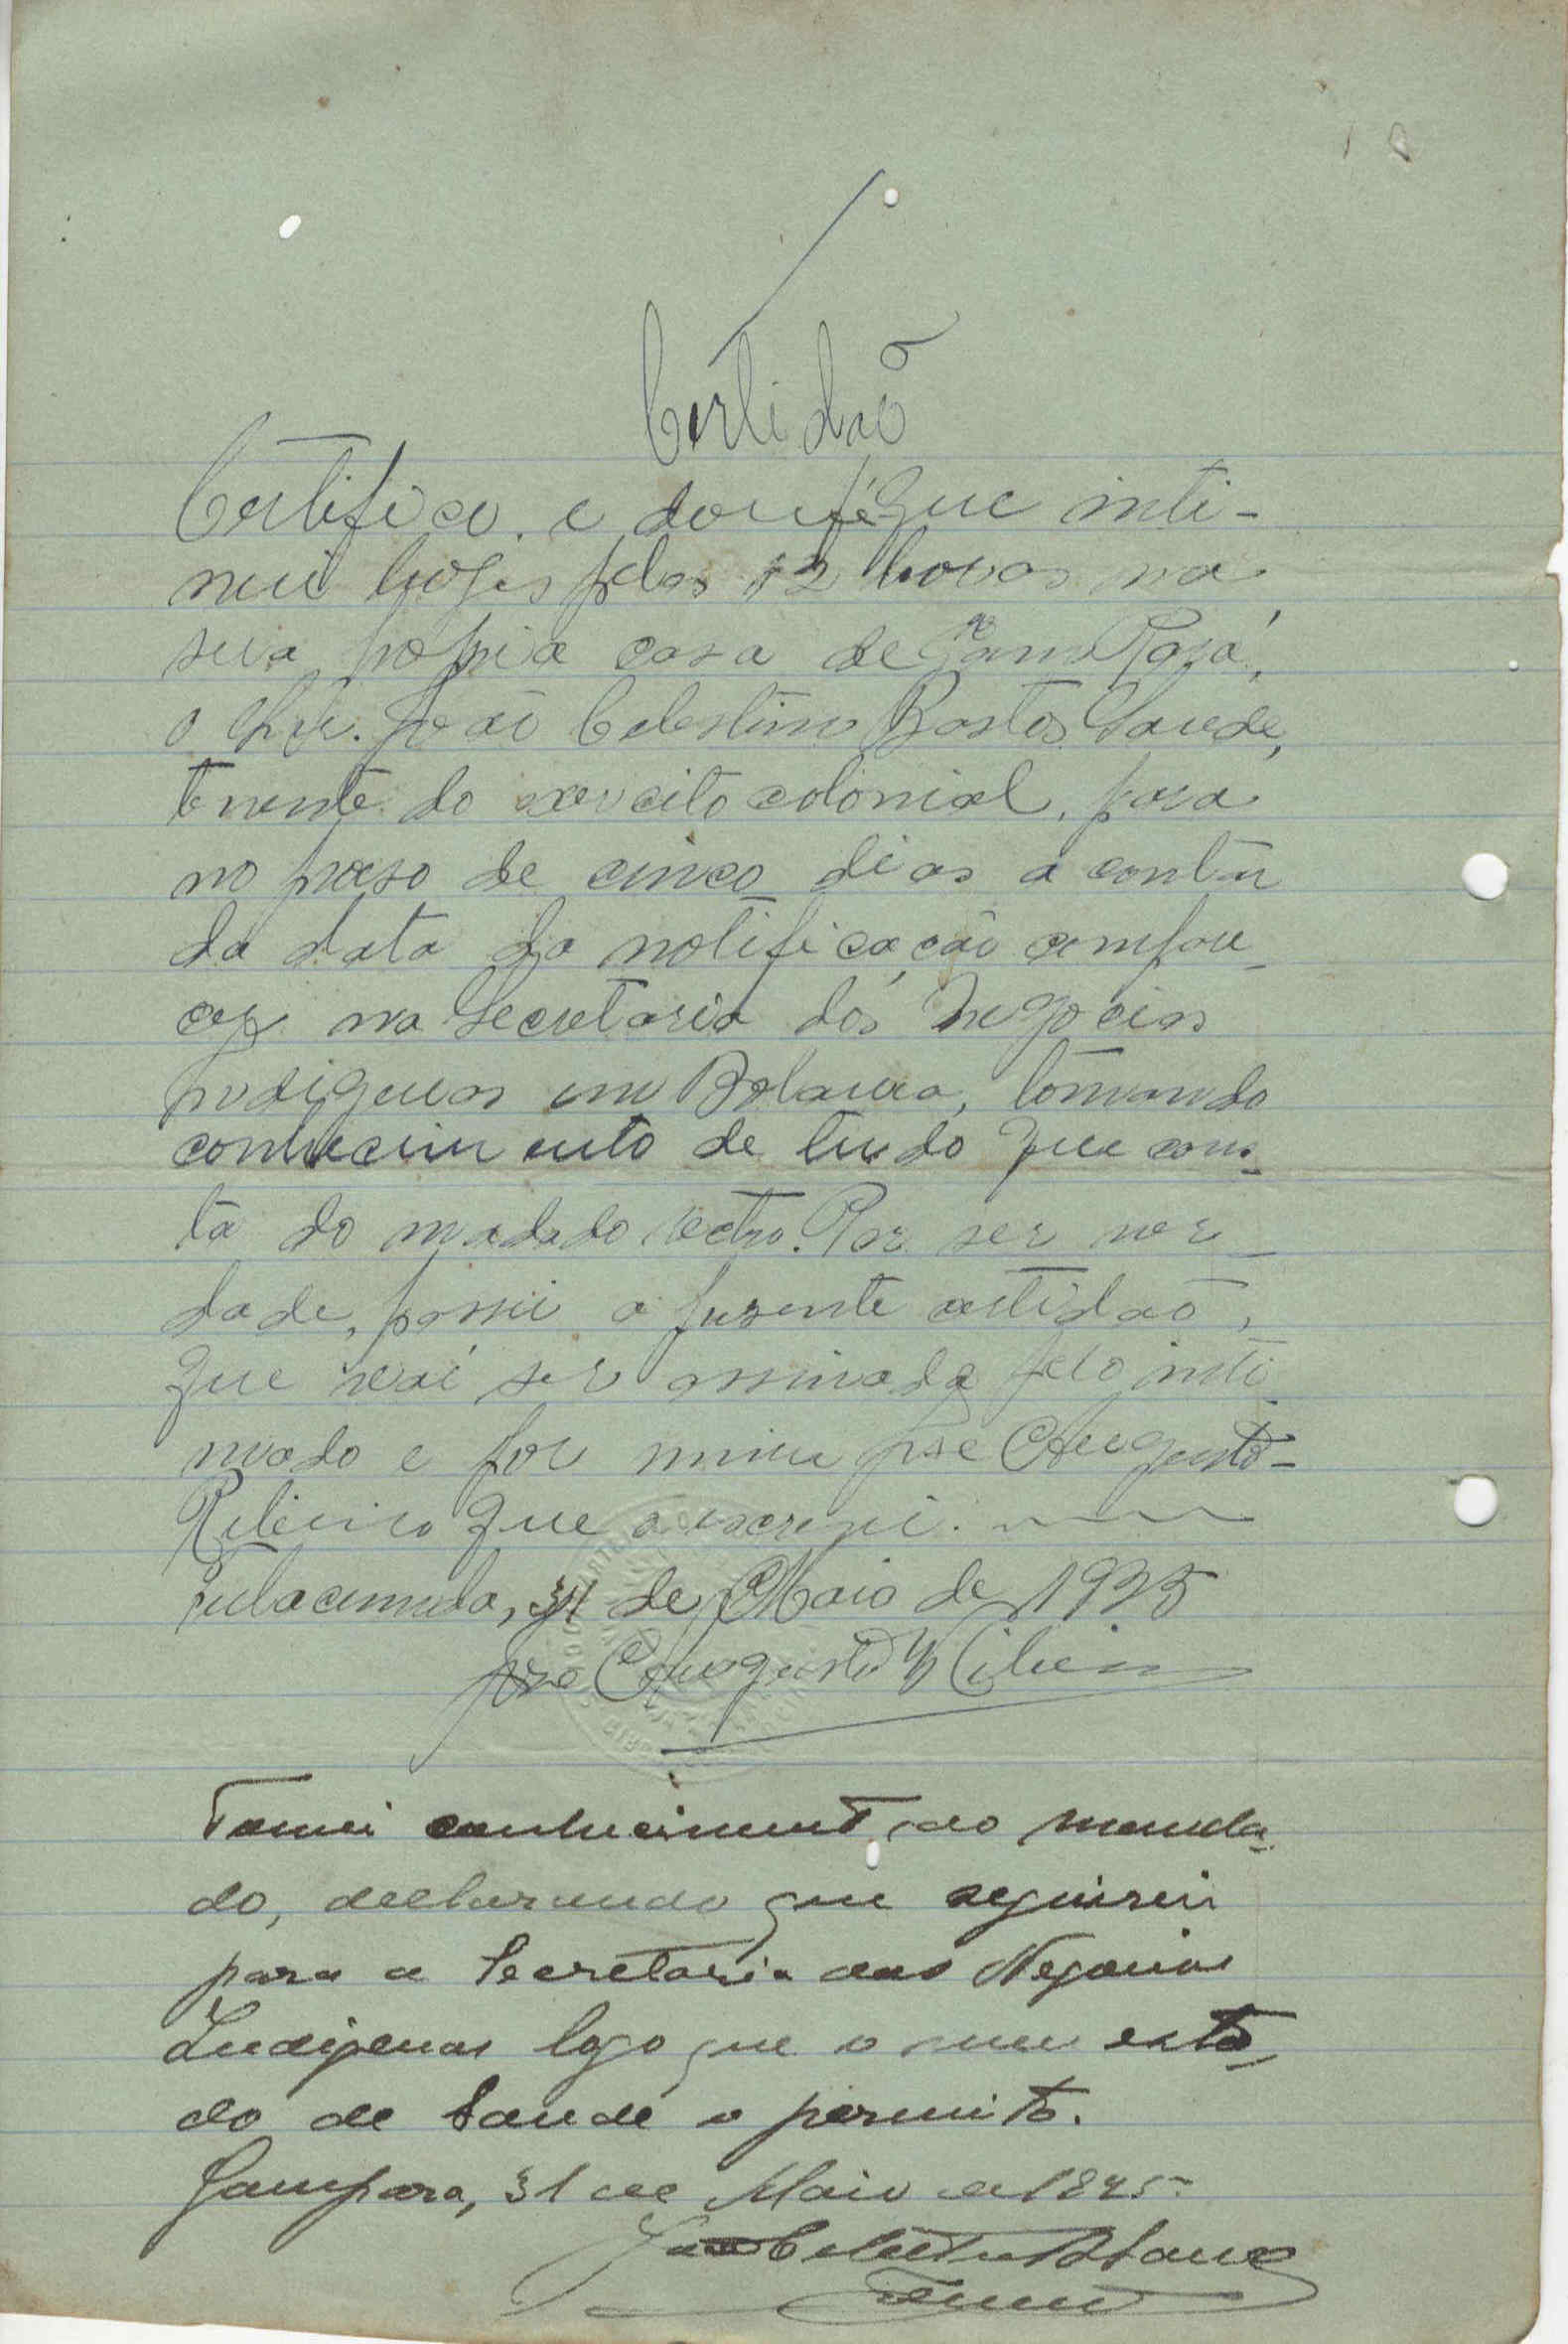 Certidaõ
Certifico, e dou fé que inti-
mei hoje pelas 12 horas na
sua propria casa de Gam Pará,
o Snr. João Celestino Bastos Saude,
tenente do exercito colonial, para
no praso de cinco dias a contar
da data da notificação compare-
cer na Secretaria dos Negocios
Indigenas em Bolama, tomando
conhecimento de tudo que cons-
ta do madado rectro. Por ser ver-
dade, passei a presente certidaõ,
que vai ser assinada pelo inti-
mado e por mim José Augusto
Ribeiro que a escrevi.
Fulacunda, 31 de Maio de 1925
José Augusto Ribeiro
Tomei conhecimento do manda-
do, declarando que seguirei
para a Secretaria dos Negocios
Indigenas logo que o meu esta-
do de saude o permita.
Gampara, 31 de Maio de 1925